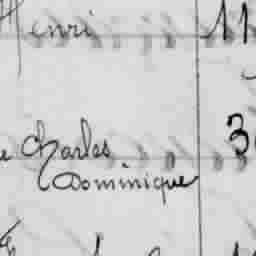 Henri 11
e Charles 3
Dominique